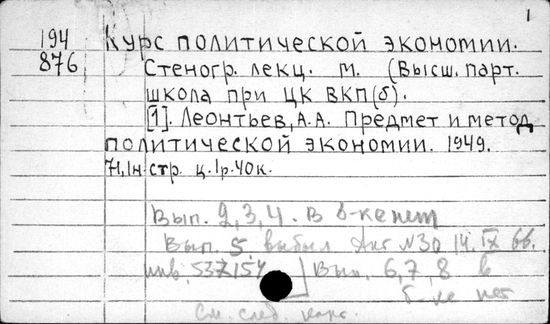 1
194 Курс политической экономии.
876 Стеногр. лекц. М. (Высш. парт.
школа при ЦК ВКП(б).
[1]. Леонтьев, А.А. Предмет и метод
политической экономии. 1949.
71, 1н. стр. ц. 1р. 40к.
Вып. 2,3,4. в б-ке нет
Вып. 5 выбыл Акт N30 14.IX 66.
инв. 537154 Вып. 6,7,8 в
б-ке нет
См. след. карт.